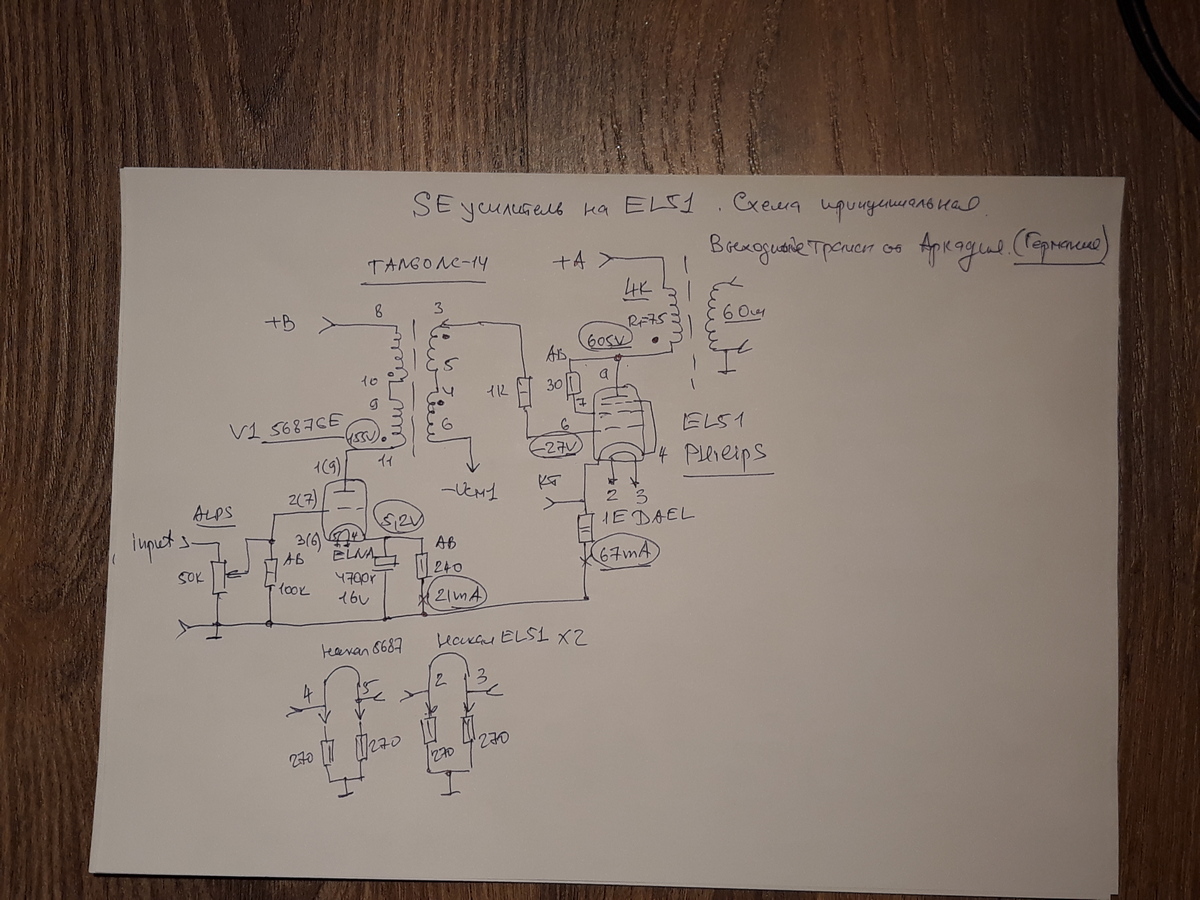 SE усилитель на EL51. Схема принципиальная.
Выходные транс от Аркадия. (Германия)
TANGO NC-14
+A
4K
R=75
6 Ом
605V
+B
8
3
10
5
9
4
6
11
1K
AB
30
7
a
6
-27V
4
EL51
Philips
V1 5687GE
155V
-Uсм1
КТ
2 3
1E DAEL
67mA
1(9)
2(7)
3(6)
ALPS
input
50K
AB
100K
5,2V
ELNA
16V
AB
240
21mA
Накал 5687
Накал EL51 X2
4 5
2 3
270 270
270 270